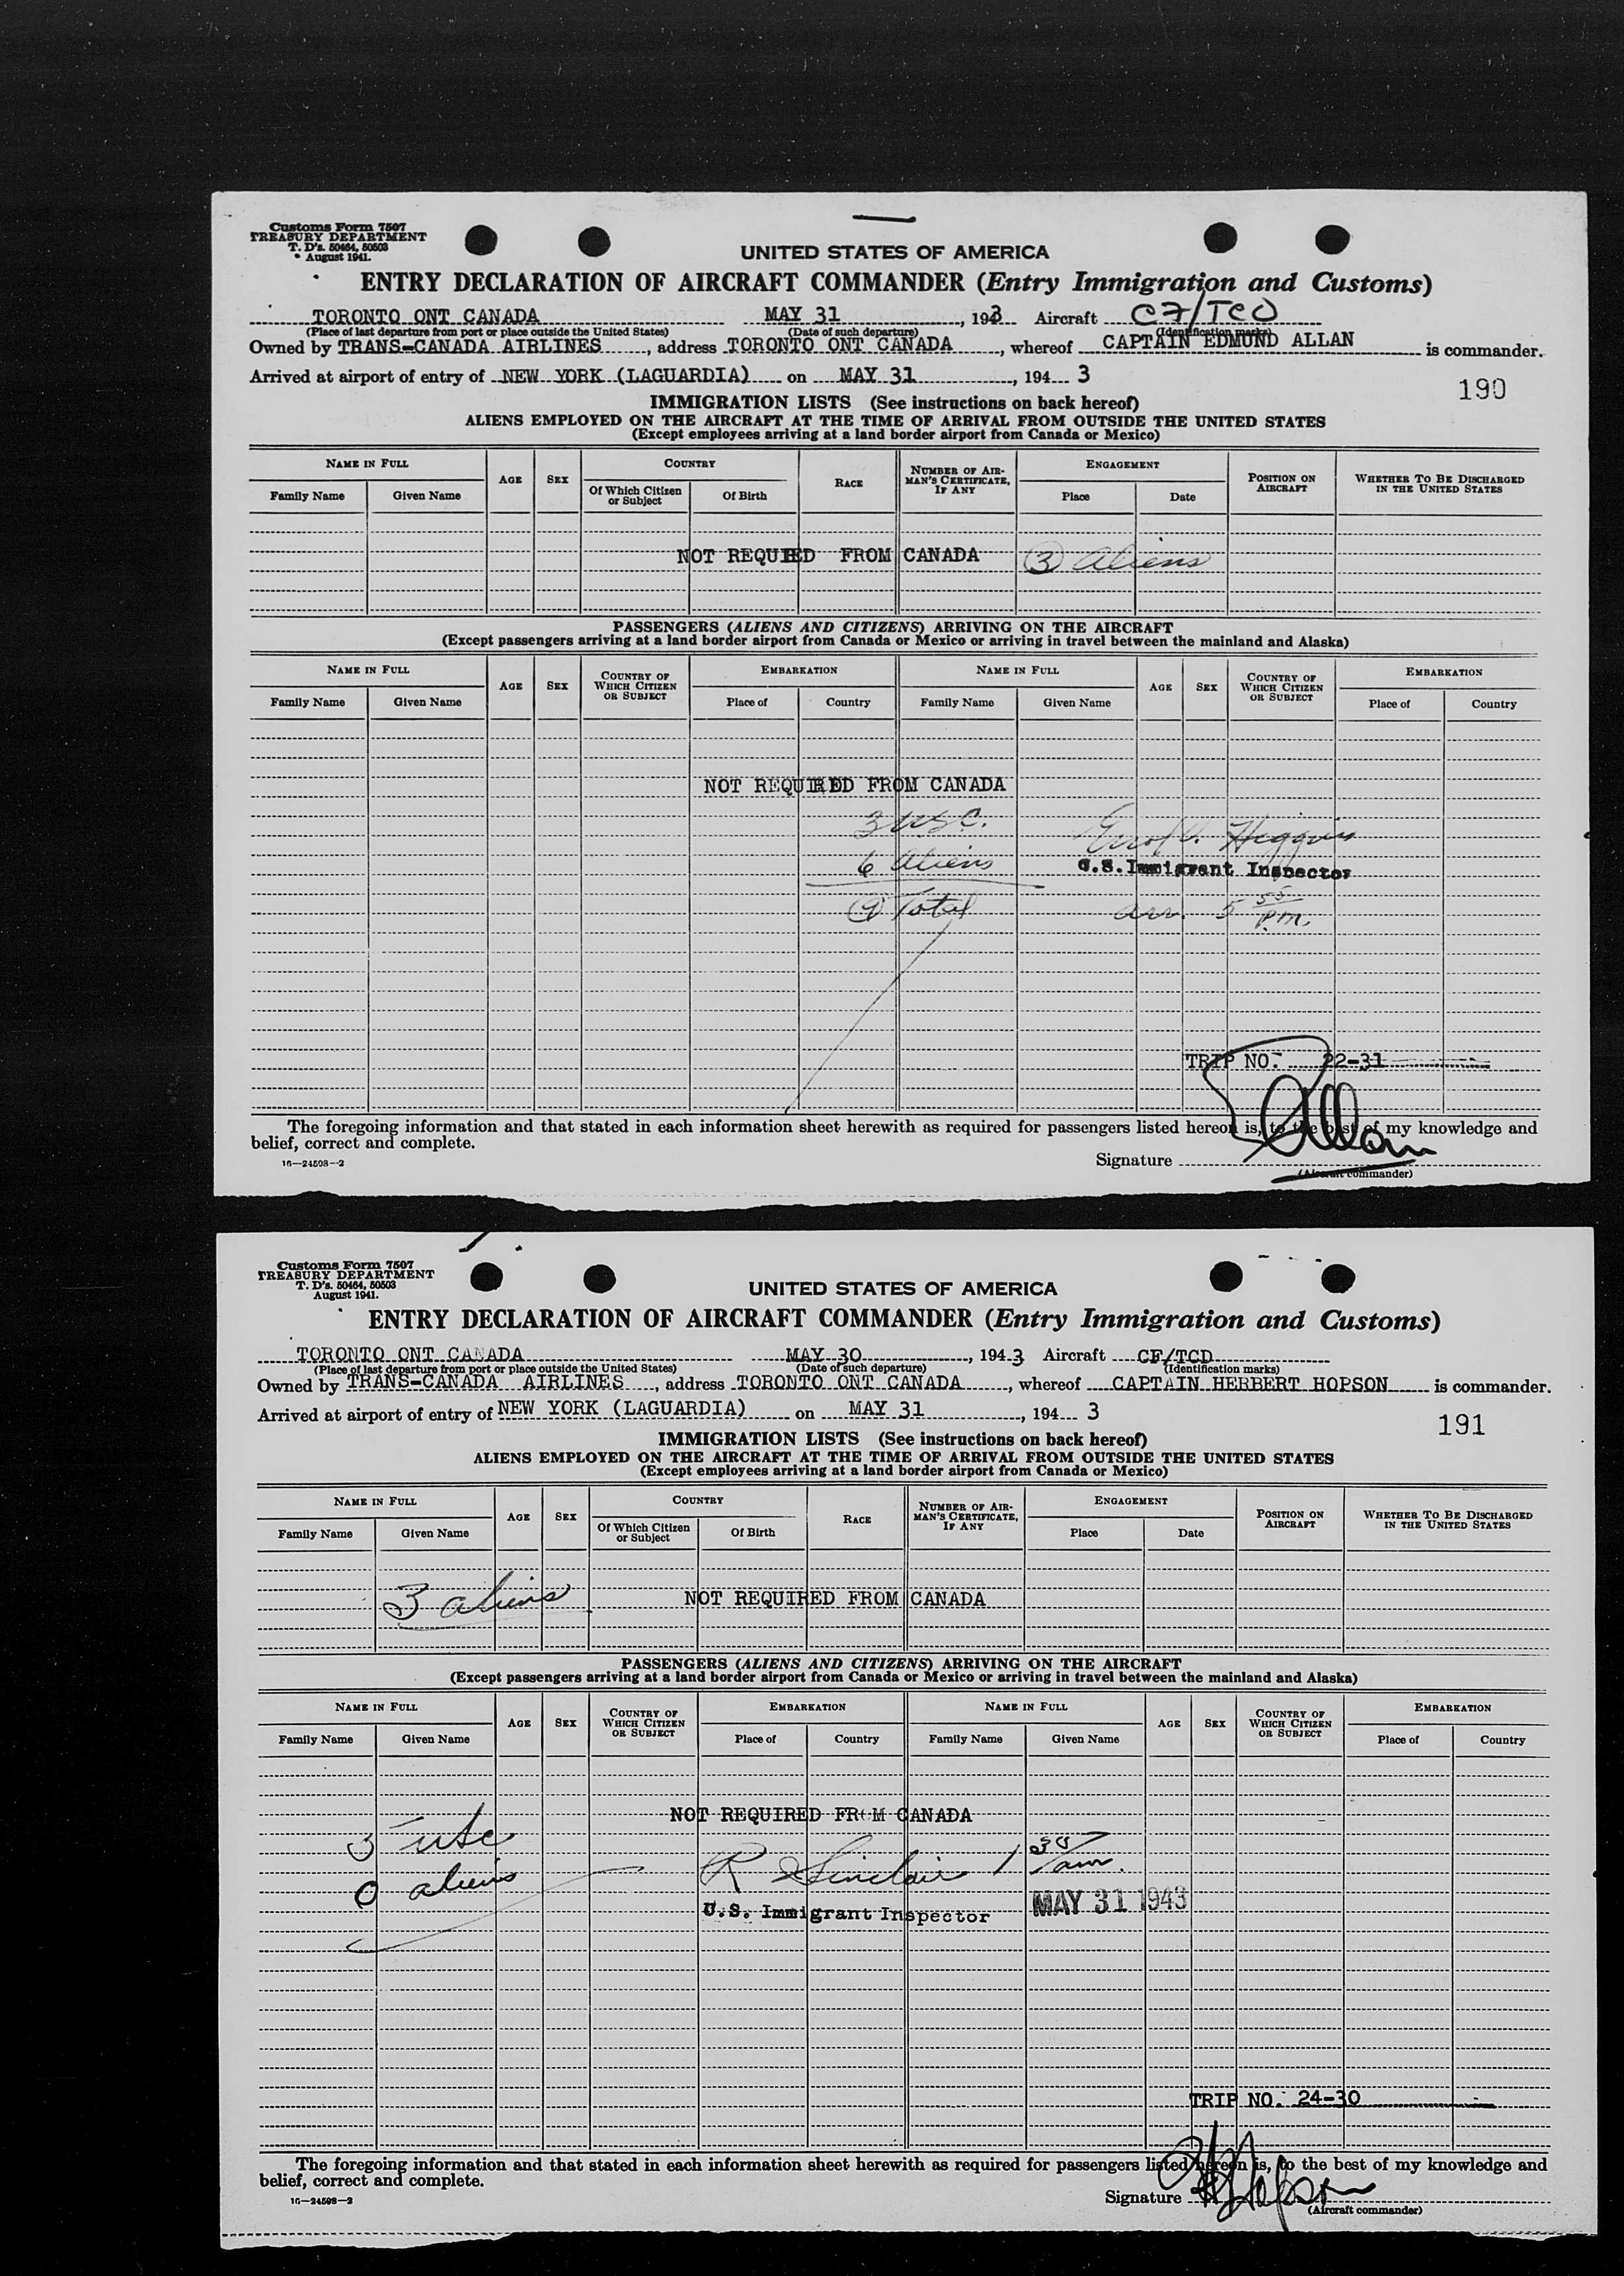 Customs Form 7507
TREASURY DEPARTMENT
T. D's. 50464, 50503
August 1941.
UNITED STATES OF AMERICA
ENTRY DECLARATION OF AIRCRAFT COMMANDER (Entry Immigration and Customs)
TORONTO ONT CANADA MAY 31, 1943 Aircraft CF/TCO
(Place of last departure from port or place outside the United States) (Date of such departure) (Identification marks)
Owned by TRANS-CANADA AIRLINES, address TORONTO ONT CANADA, whereof CAPTAIN EDMUND ALLAN is commander.
Arrived at airport of entry of NEW YORK (LAGUARDIA) on MAY 31, 194 3
190
IMMIGRATION LISTS (See instructions on back hereof)
ALIENS EMPLOYED ON THE AIRCRAFT AT THE TIME OF ARRIVAL FROM OUTSIDE THE UNITED STATES
(Except employees arriving at a land border airport from Canada or Mexico)
NAME IN FULL AGE SEX COUNTRY RACE NUMBER OF AIRMAN'S CERTIFICATE, IF ANY ENGAGEMENT POSITION ON AIRCRAFT WHETHER TO BE DISCHARGED IN THE UNITED STATES
Family Name Given Name Of Which Citizen or Subject Of Birth Place Date
NOT REQUIED FROM CANADA 3 Aliens
PASSENGERS (ALIENS AND CITIZENS) ARRIVING ON THE AIRCRAFT
(Except passengers arriving at a land border airport from Canada or Mexico or arriving in travel between the mainland and Alaska)
NAME IN FULL AGE SEX COUNTRY OF WHICH CITIZEN OR SUBJECT EMBARKATION NAME IN FULL AGE SEX COUNTRY OF WHICH CITIZEN OR SUBJECT EMBARKATION
Family Name Given Name Place of Country Family Name Given Name Place of Country
NOT REQUIRED FROM CANADA
3 USC. Higgins
6 Aliens U.S. Immigrant Inspector
9 Total arr. 5 55 P.M.
TRIP NO. 22-31
The foregoing information and that stated in each information sheet herewith as required for passengers listed hereon is, to the best of my knowledge and
belief, correct and complete.
16-24508-2
Signature Allan
(Aircraft commander)
Customs Form 7507
TREASURY DEPARTMENT
T. D's. 50464, 50503
August 1941.
UNITED STATES OF AMERICA
ENTRY DECLARATION OF AIRCRAFT COMMANDER (Entry Immigration and Customs)
TORONTO ONT CANADA MAY 30, 1943 Aircraft CF/TCD
(Place of last departure from port or place outside the United States) (Date of such departure) (Identification marks)
Owned by TRANS-CANADA AIRLINES, address TORONTO ONT CANADA, whereof CAPTAIN HERBERT HOPSON is commander.
Arrived at airport of entry of NEW YORK (LAGUARDIA) on MAY 31, 194 3
191
IMMIGRATION LISTS (See instructions on back hereof)
ALIENS EMPLOYED ON THE AIRCRAFT AT THE TIME OF ARRIVAL FROM OUTSIDE THE UNITED STATES
(Except employees arriving at a land border airport from Canada or Mexico)
NAME IN FULL AGE SEX COUNTRY RACE NUMBER OF AIRMAN'S CERTIFICATE, IF ANY ENGAGEMENT POSITION ON AIRCRAFT WHETHER TO BE DISCHARGED IN THE UNITED STATES
Family Name Given Name Of Which Citizen or Subject Of Birth Place Date
3 aliens NOT REQUIRED FROM CANADA
PASSENGERS (ALIENS AND CITIZENS) ARRIVING ON THE AIRCRAFT
(Except passengers arriving at a land border airport from Canada or Mexico or arriving in travel between the mainland and Alaska)
NAME IN FULL AGE SEX COUNTRY OF WHICH CITIZEN OR SUBJECT EMBARKATION NAME IN FULL AGE SEX COUNTRY OF WHICH CITIZEN OR SUBJECT EMBARKATION
Family Name Given Name Place of Country Family Name Given Name Place of Country
NOT REQUIRED FROM CANADA
3 usc
0 aliens R Sinclair 1 30 am.
U.S. Immigrant Inspector MAY 31 1943
TRIP NO. 24-30
The foregoing information and that stated in each information sheet herewith as required for passengers listed hereon is, to the best of my knowledge and
belief, correct and complete.
16-24508-2
Signature H Hopson
(Aircraft commander)